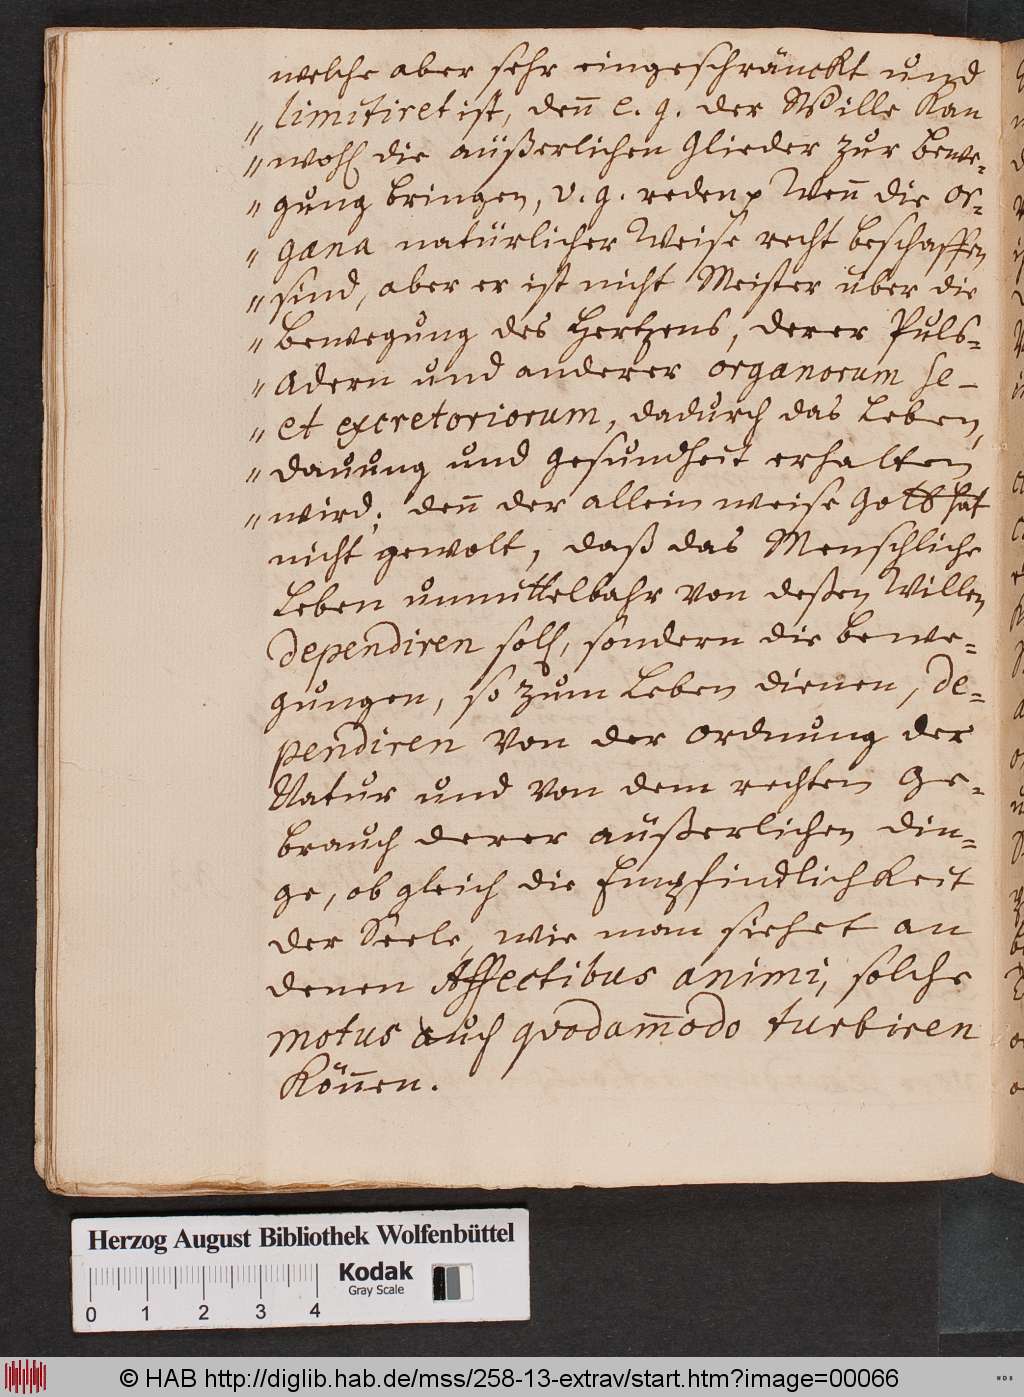 welche aber sehr eingeschränckt und
„ limitiret ist, deñ e. g. der Wille kan
„ wohl die äüßerlichen Glieder zur bewe-
„ gung bringen, v. g. reden p Weñ die or-
„ gana natürlicher Weise recht beschaffen
„ sind, aber er ist nicht Meister über die
„ bewegung des Hertzens, derer Puls-
„ Adern und anderer organorum se-
„ et excretoriorum, dadurch das Leben,
„ dauung und gesundheit erhalten
„ wird; deñ der allein weise Gott hat
nicht gewolt, daß das Menschliche
Leben unmittelbahr von deßen Willen
dependiren soll, sondern die bewe-
gungen, so zum Leben dienen, de-
pendiren von der ordnung der
Natur und von dem rechten Ge-
brauch derer äüßerlichen din-
ge, ob gleich die Empfindlichkeit
der Seele, wie man siehet an
denen Affectibus animi, solche
motus auch qvodam̃odo turbiren
köñen.
Herzog August Bibliothek Wolfenbüttel
Kodak
Gray Scale
0 1 2 3 4
© HAB http://diglib.hab.de/mss/258-13-extrav/start.htm?image=00066